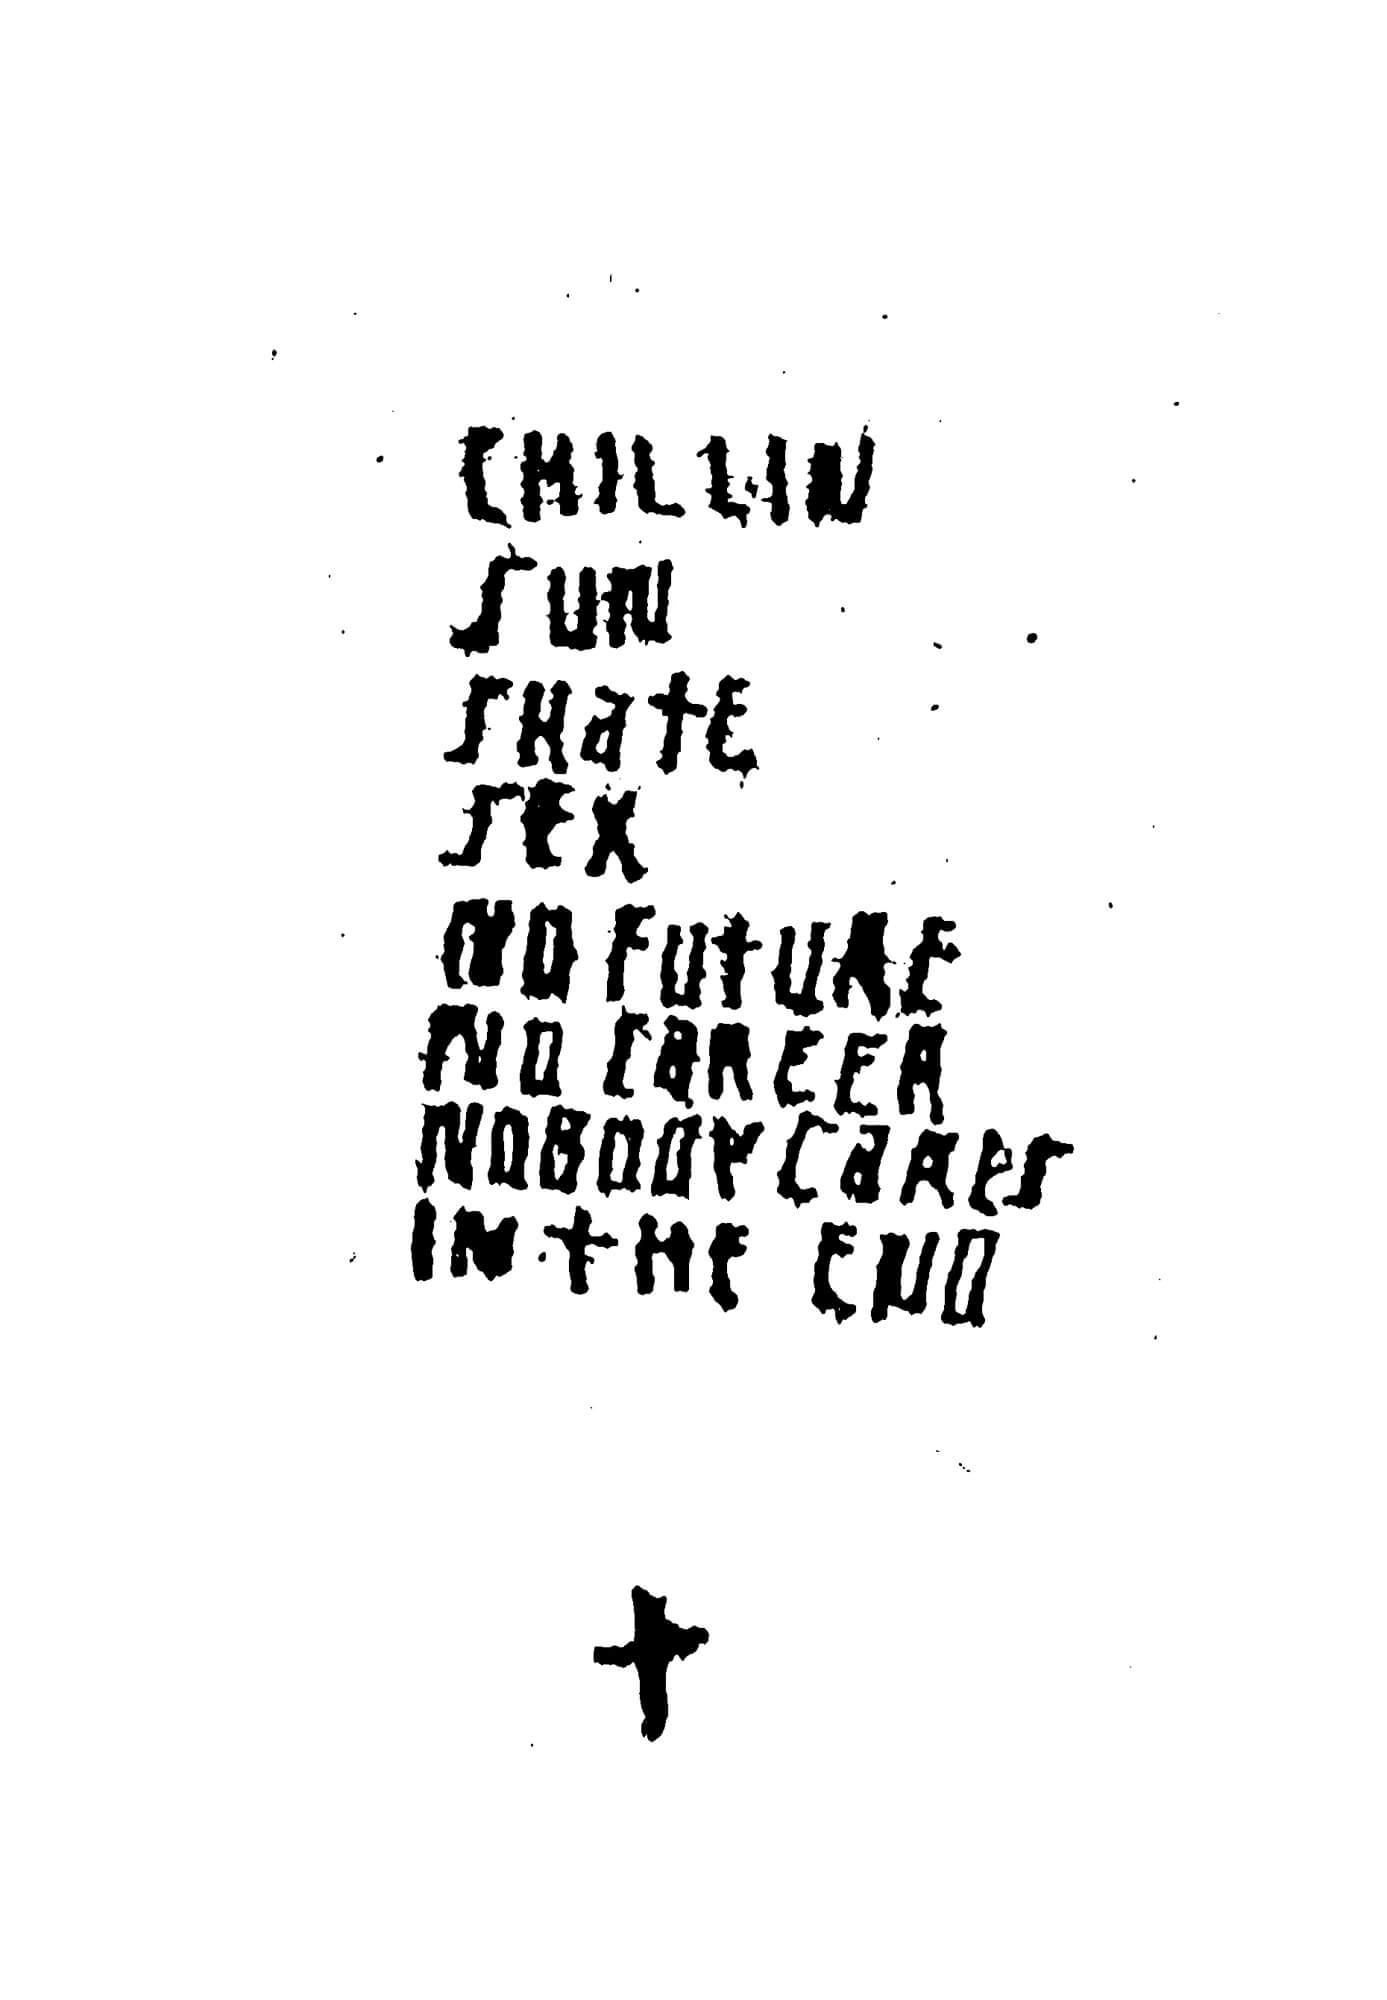 CHILLIN
SUN
SKatE
SEX
NO FUtURE
NO CaREER
NOBODY CaReS
IN tHE END